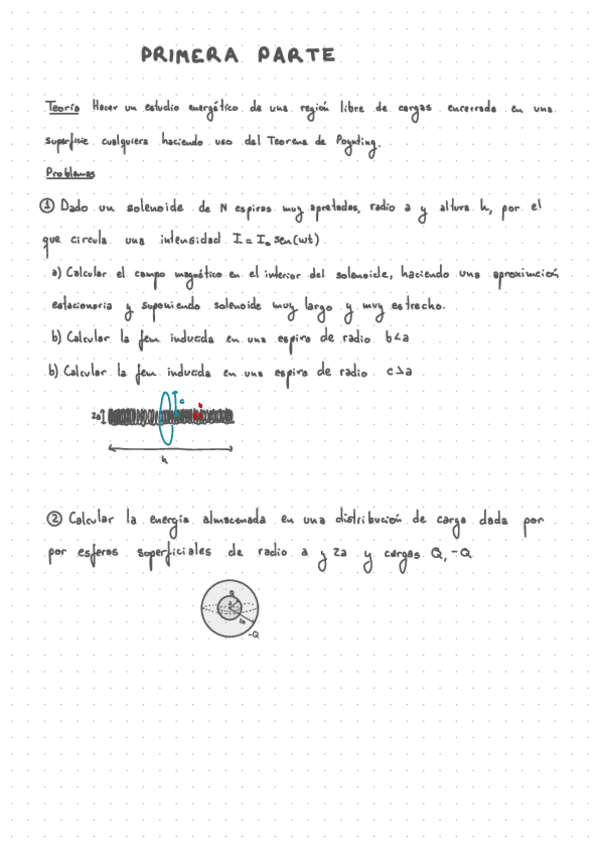 PRIMERA PARTE
Teoría Hacer un estudio energético de una región libre de cargas encerrada en una
superficie cualquiera haciendo uso del Teorema de Poynting.
Problemas
① Dado un solenoide de N espiras muy apretadas, radio a y altura h, por el
que circula una intensidad I = I₀ sen(wt)
a) Calcular el campo magnético en el interior del solenoide, haciendo una aproximación
estacionaria y suponiendo solenoide muy largo y muy estrecho.
b) Calcular la fem inducida en una espira de radio b<a
b) Calcular la fem inducida en una espira de radio c>a
c
b
2a
h
② Calcular la energía almacenada en una distribución de carga dada por
por esferas superficiales de radio a y 2a y cargas Q, -Q
Q
a
2a
-Q